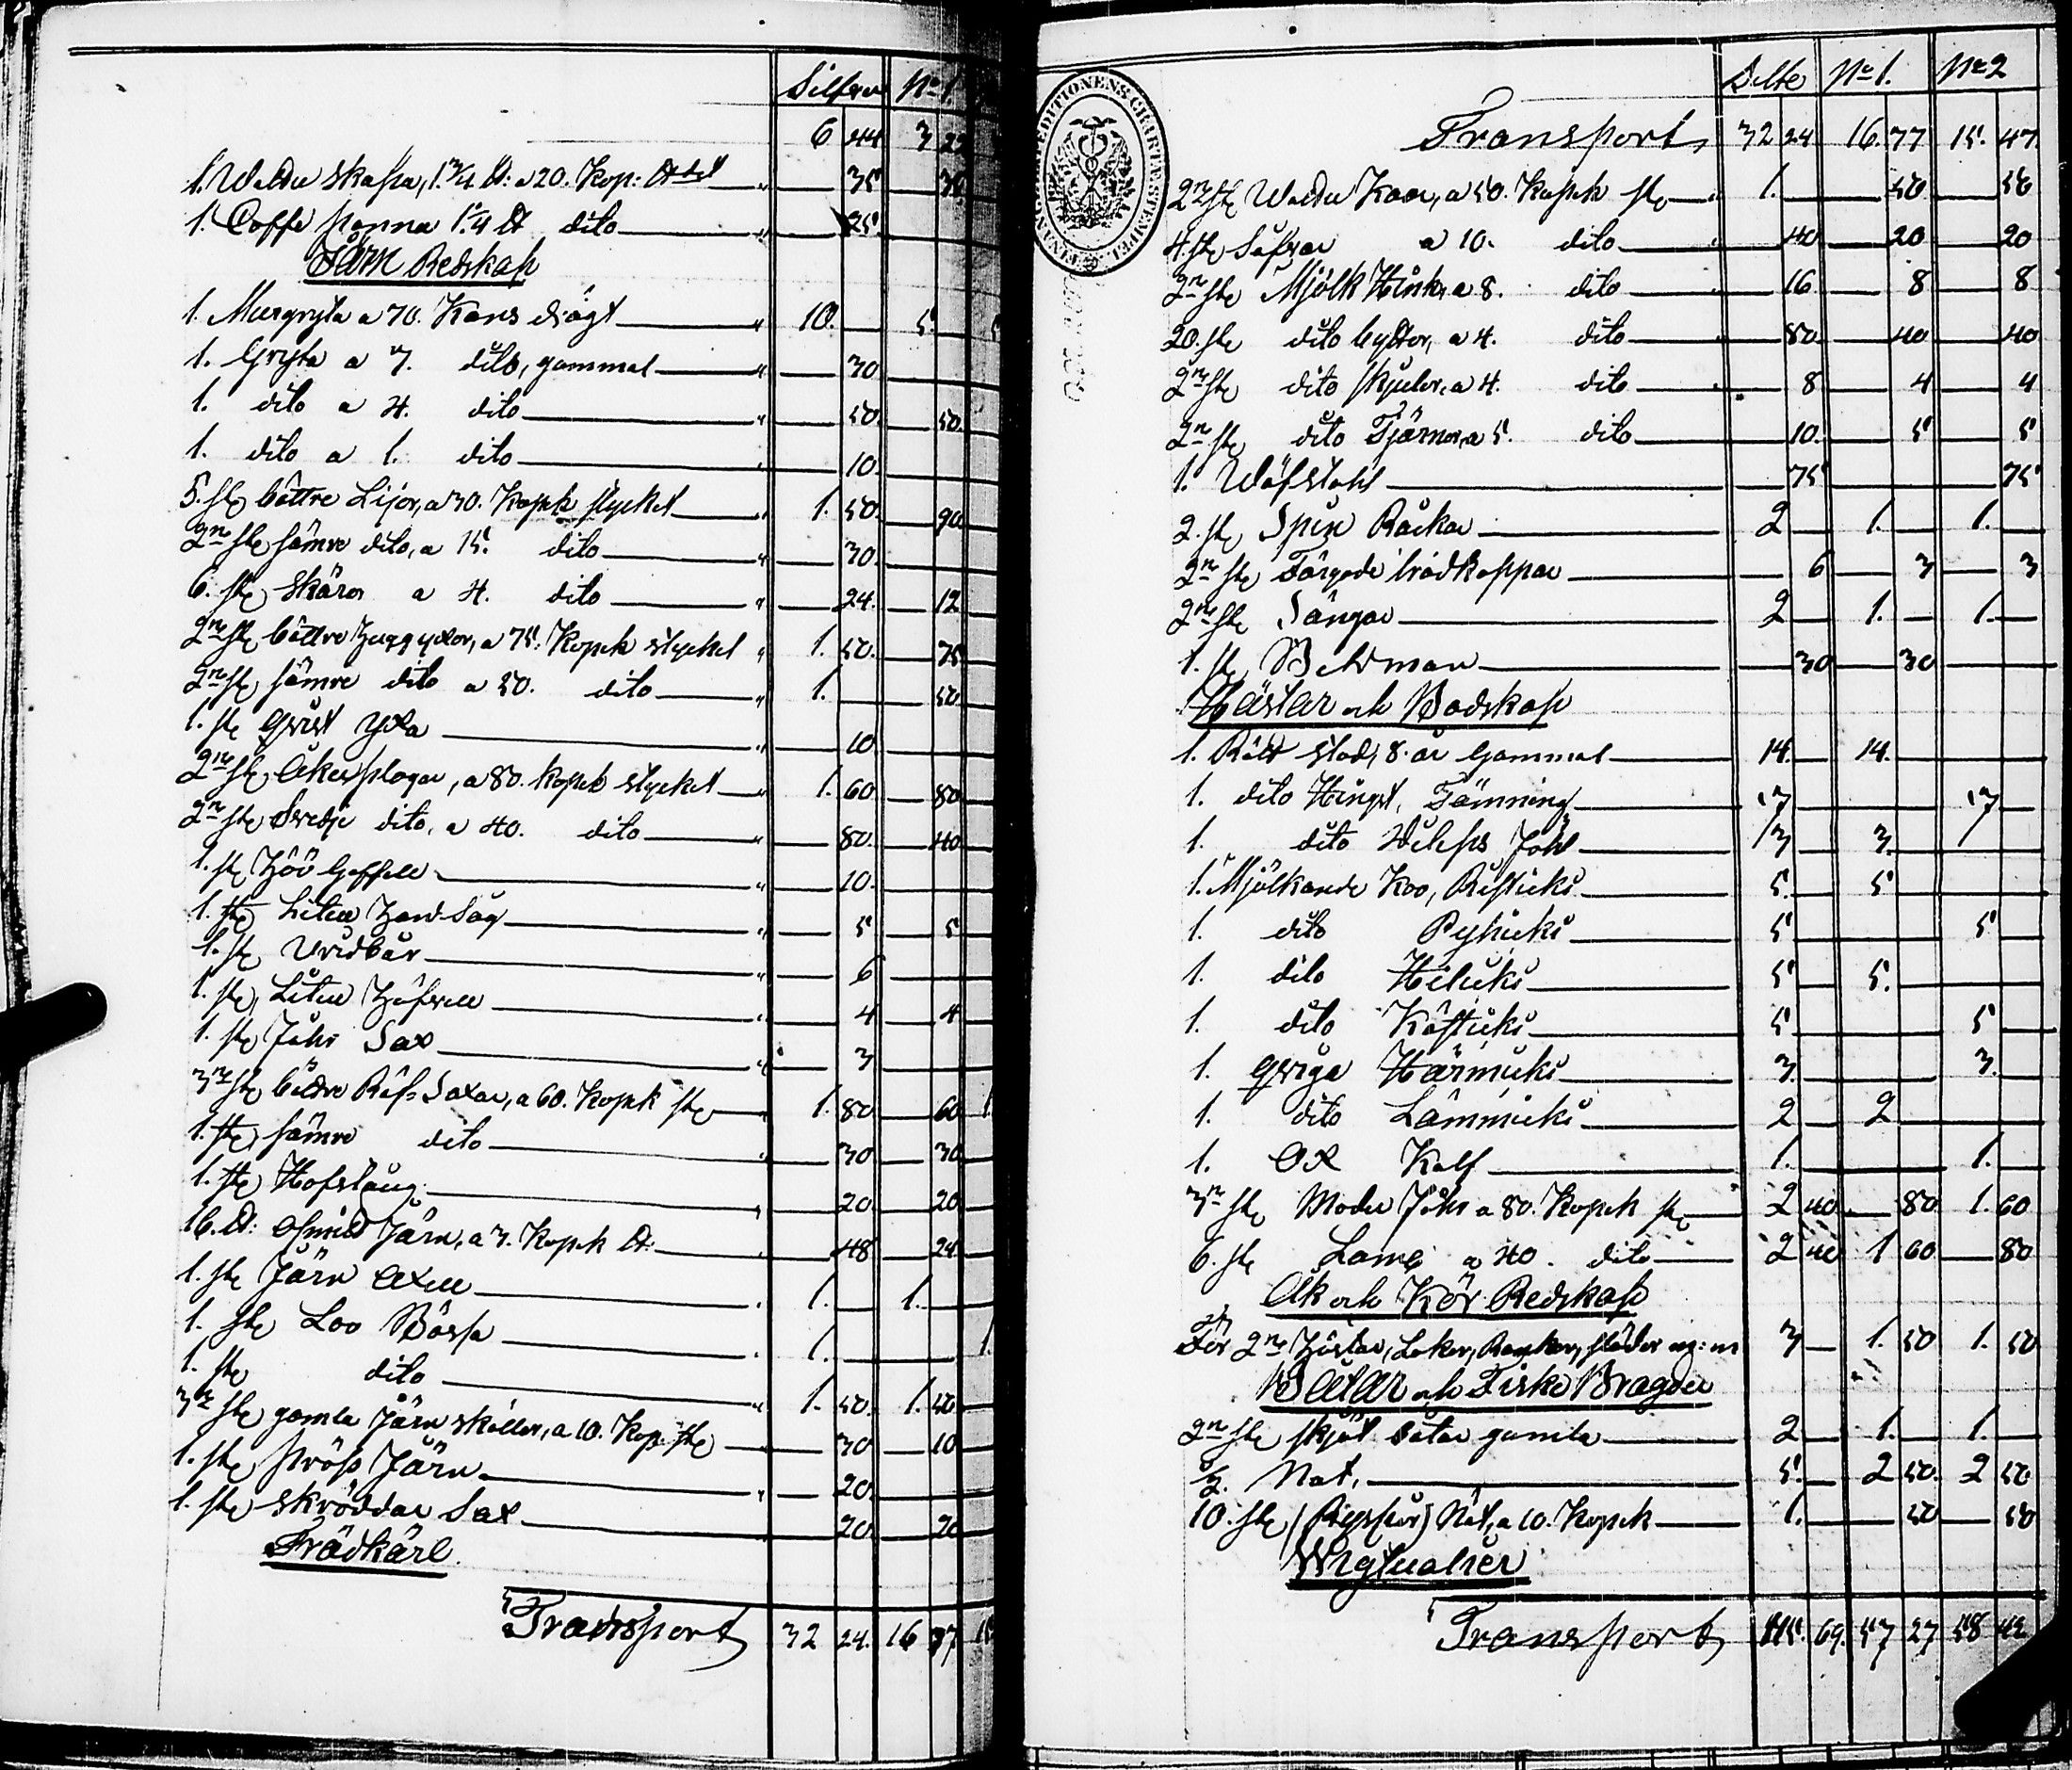 Silfver No 1.
6 44 3 22
1. skapa, 1 3/4 ℔: a 20. Kop: 35 35
1. Caffe panna 1 1/4 ℔ dito 25
Järn Redskap
1. Murgryta a 70. Kans drägt 10. 5.
1. Gryta a 7. dito, gammal 30
1. dito a 4. dito 50. 50.
1. dito a 1. dito 10.
5. st bättre Lijor, a 30. Kopek stycket 1. 50. 90.
2ne st sämre dito, a 15. dito 30.
6. st Skäror a 4. dito 24. 12
2ne st bättre huggyxor, a 75. Kopek stycket 1. 50. 75
2ne st sämre dito a 50. dito 1. 50
1. st yxa 10
2ne st Åkerplogar, a 80. kopek stycket 1. 60 80
2ne st Svedje dito, a 40. dito 80. 40
1. st Höö Gaffell 10.
1. st Liten Hand-Såg 5 5
1. st Vridbår 6
1. st Liten Höfvell 4 4
1. st Fåhr Sax 3
3ne st bädre Räf-Saxar, a 60. Kopek st 1. 80 60 1.
1. st sämre dito 30 30
1. st Hofstång 20 20
16. ℔: Osmid Järn, a 3. Kopek ℔: 48 24
1. st Järn Axell 1. 1.
1. st Loo Bössa 1. 1.
1. st dito 1. 50. 1. 50
3ne st gamla Järn skållor, a 10. Kop: st 30 10
1. st Järn 20.
1. st Skröddar Sax 20 20
Trädkärl
Transport 32 24. 16 77 15
FINANCE EXPEDITIONENS CHARTÆ STEMPEL
Dito No 1. No 2
Transport 32 24 16. 77 15. 47
2ne st Kaar, a 50. Kopek st 1. 50 50
4. st Såfvar a 10. dito 40 20 20
2ne st Mjölk Hinkr, a 8. dito 16. 8 8
20. st dito byttor, a 4. dito 80 40 40
2ne st dito skjulor, a 4. dito 8 4 4
2ne st dito Tjärnor, a 5. dito 10. 5 5
1. Wäfstohl 75 75
2. st Spin Råckar 2 1. 1.
2ne st Färgade brädkoppar 6 3 3
2ne st Sängar 2 1. 1.
1. st Betsman 30 30
Hästar och Boskap
1. Rött stod, 8. år Gammal 14. 14.
1. dito Hingst, Tämning 17 17
1. dito Fohl 3 3.
1. Mjölkande Koo, Risticki 5. 5
1. dito 5 5
1. dito Hilicki 5 5.
1. dito 5 5
1. Qviga Härmicki 3. 3.
1. dito Lämmicki 2 2
1. Ox Kalf 1. 1.
3ne st Moder Fåhr a 80. Kopek st 2 40. 80 1. 60
6. st Lamb a 40. dito 2 40 1 60 80
Åk och Kör Redskap
För 2ne Hästar, Lokor, Rankor, slädor mz: m 3 1. 50 1. 50
Båtar och Fiske Bragder
2ne st skjöt båtar gamla 2 1. 1.
1/2. Not, 5. 2 50. 2 50
10. st Nät, a 10. Kopek 1. 50 50
Wigtualier
Transport 115. 69. 57 27 58 42